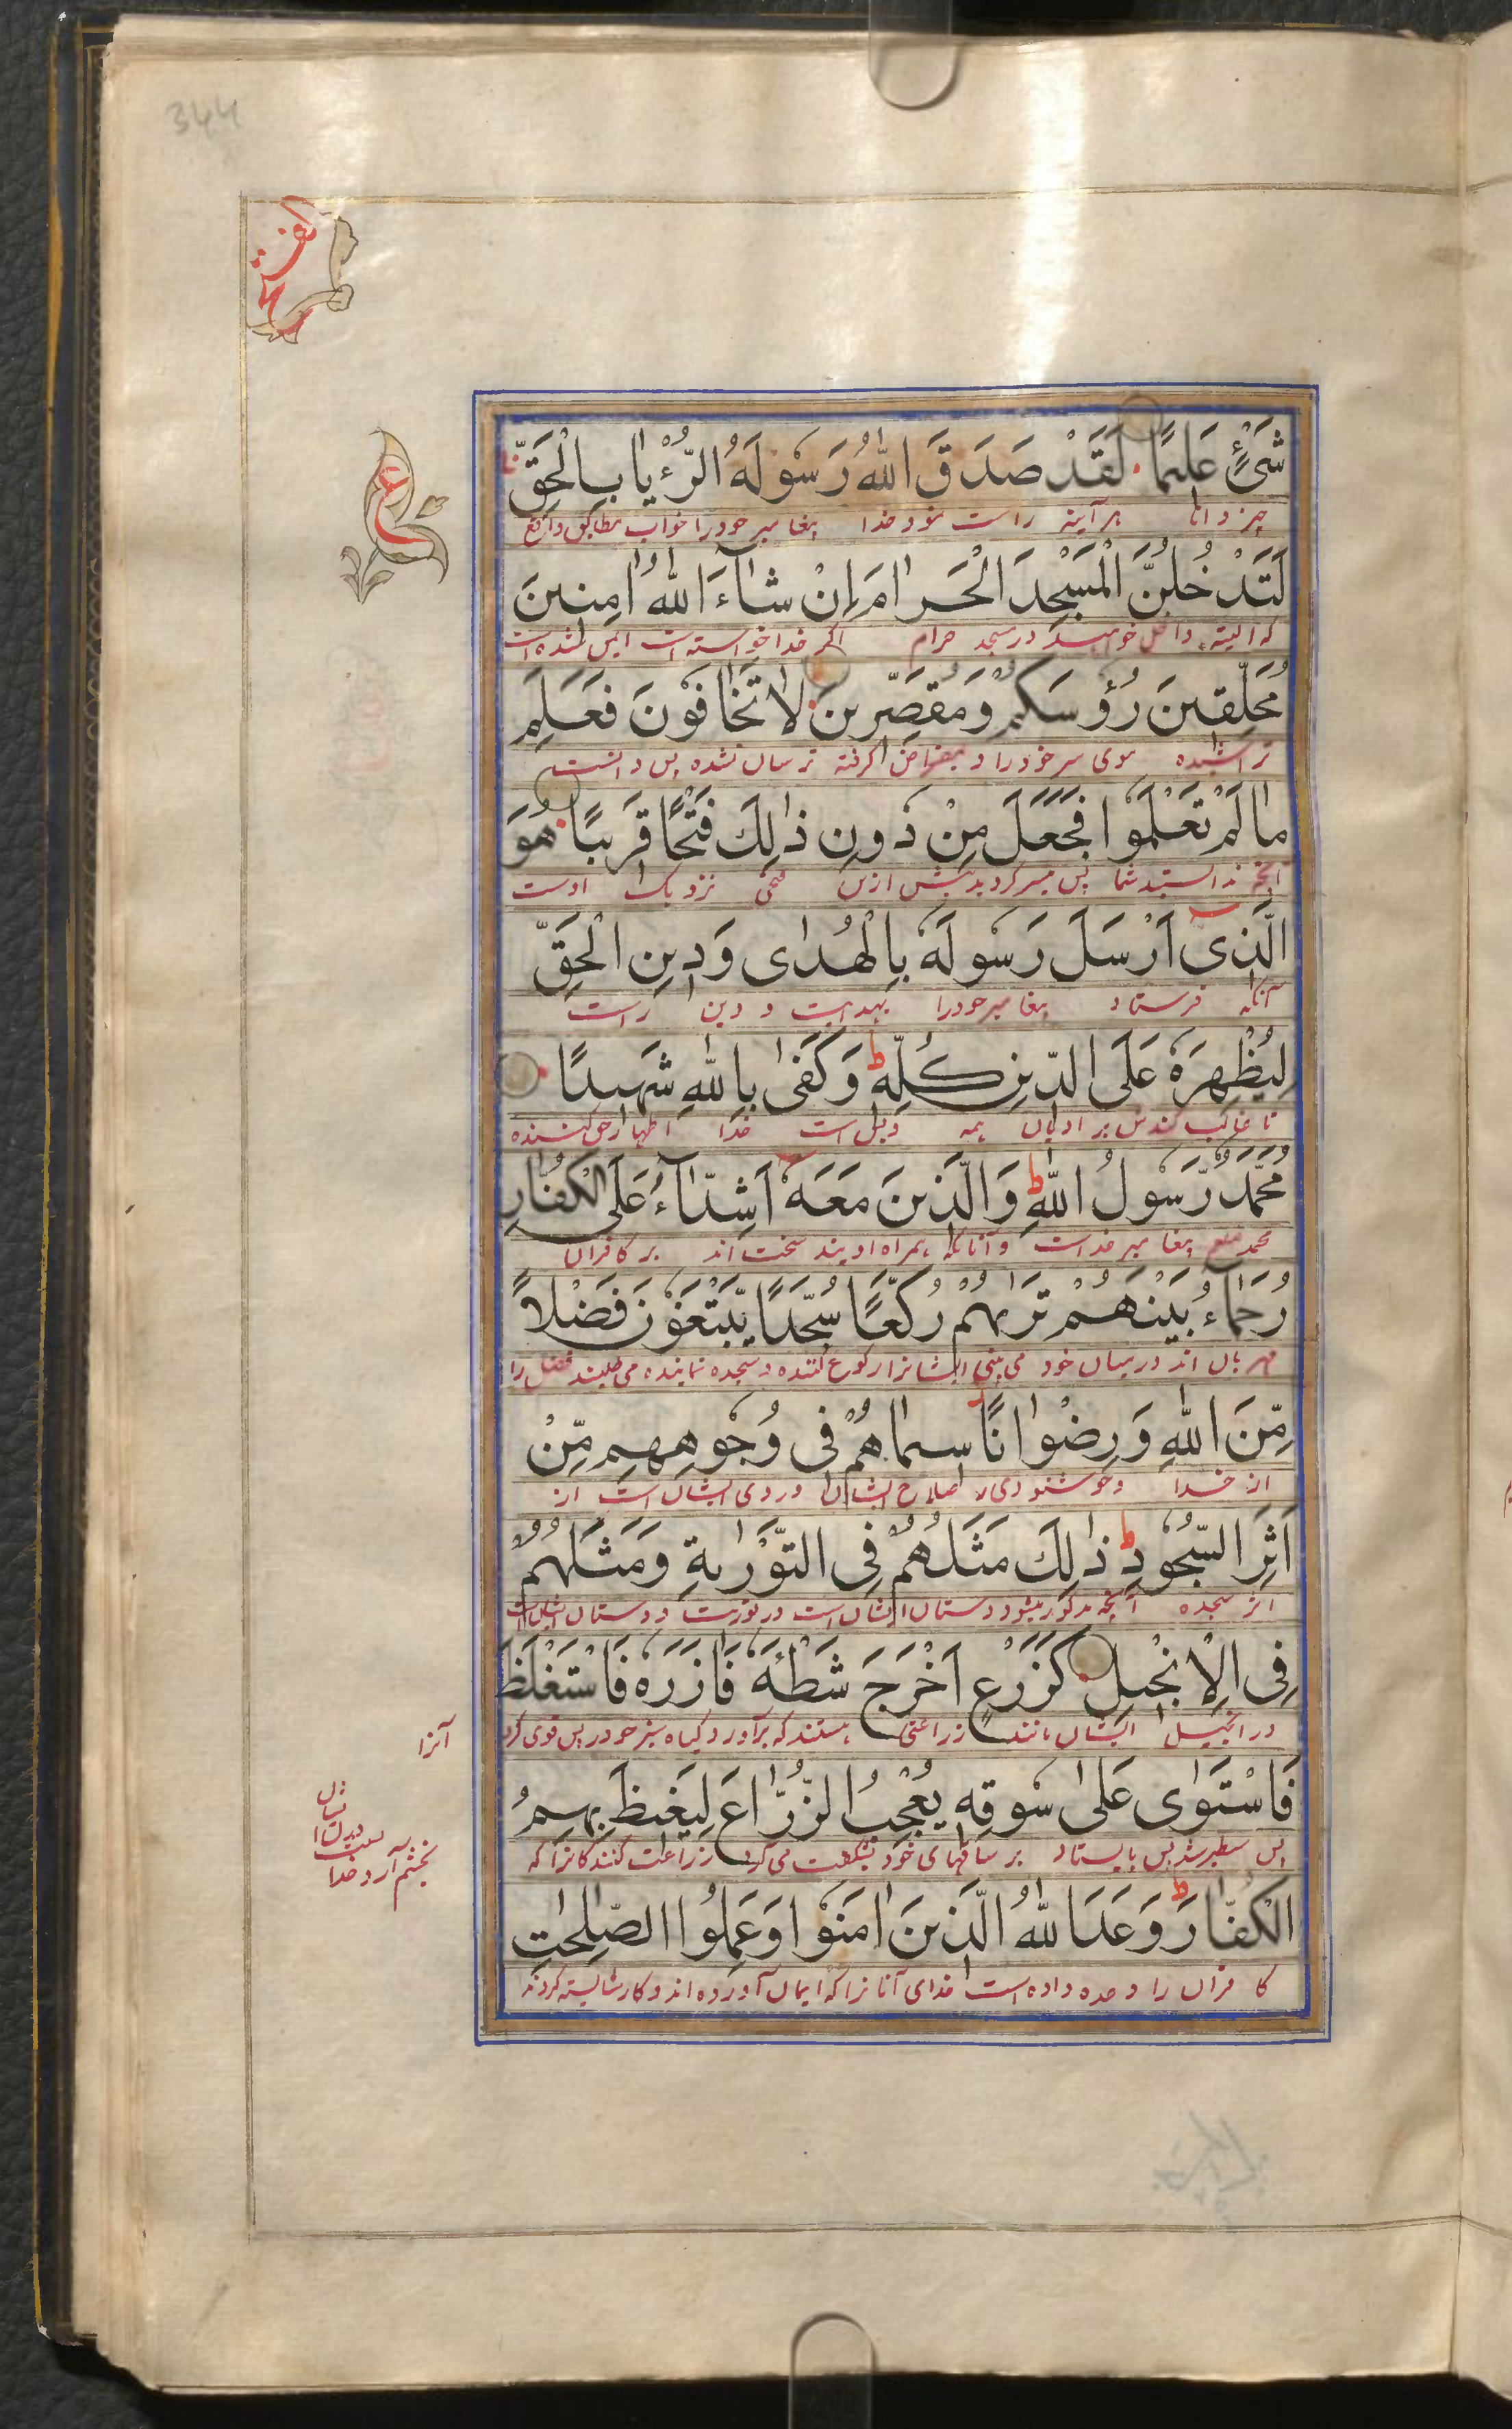 344
الفتح
ع
شَیْءٍ عَلِیْمًا لَقَدْ صَدَقَ اللّٰهُ رَسُوْلَهُ الرُّءْیَا بِالْحَقِّ
چیز دانا هر آینه راست نمود خدا پیغامبر خود را خواب مطابق واقع
لَتَدْخُلُنَّ الْمَسْجِدَ الْحَرَامَ اِنْ شَآءَ اللّٰهُ اٰمِنِیْنَ
که البته داخل خواهید در مسجد حرام اگر خدا خواسته است ایمن شده
مُحَلِّقِیْنَ رُؤُسَكُمْ وَمُقَصِّرِیْنَ لَا تَخَافُوْنَ فَعَلِمَ
تراشیده موی سر خود را و بمقراض گرفته ترسان نشده پس دانست
مَا لَمْ تَعْلَمُوْا فَجَعَلَ مِنْ دُوْنِ ذٰلِكَ فَتْحًا قَرِیْبًا هُوَ
آنچه ندانستید شما پس میسر کرد پیش ازین فتحی نزدیک اوست
الَّذِیْٓ اَرْسَلَ رَسُوْلَهٗ بِالْهُدٰی وَدِیْنِ الْحَقِّ
آنکه فرستاد پیغامبر خود را بهدایت و دین راست
لِیُظْهِرَهٗ عَلَی الدِّیْنِ كُلِّهٖ ط وَكَفٰی بِاللّٰهِ شَهِیْدًا
تا غالب کندش بر ادیان همه و بس است خدا اظهار حق کننده
مُحَمَّدٌ رَّسُوْلُ اللّٰهِ ط وَالَّذِیْنَ مَعَهٗٓ اَشِدَّآءُ عَلَی الْكُفَّارِ
محمد صلعم پیغامبر خداست و آنانکه همراه اویند سخت اند بر کافران
رُحَمَآءُ بَیْنَهُمْ تَرٰىهُمْ رُكَّعًا سُجَّدًا یَّبْتَغُوْنَ فَضْلًا
مهربان اند در میان خود می بینی ایشانرا رکوع کننده و سجده نماینده می طلبند فضل را
مِّنَ اللّٰهِ وَرِضْوَانًا سِیْمَاهُمْ فِیْ وُجُوْهِهِمْ مِّنْ
از خدا و خوشنودی را صلاح ایشان در روی ایشان است از
اَثَرِ السُّجُوْدِ ط ذٰلِكَ مَثَلُهُمْ فِی التَّوْرٰىةِ وَمَثَلُهُمْ
اثر سجده آنچه مذکور میشود داستان ایشان است در توریت و داستان ایشان است
فِی الْاِنْجِیْلِ كَزَرْعٍ اَخْرَجَ شَطْئَهٗ فَاٰزَرَهٗ فَاسْتَغْلَظَ
در انجیل ایشان مانند زراعتی هستند که برآورد گیاه سبز خود را پس قوی کرد
آنرا
فَاسْتَوٰی عَلٰی سُوْقِهٖ یُعْجِبُ الزُّرَّاعَ لِیَغِیْظَ بِهِمُ
پس سطبر شد پس بایستاد بر ساقهای خود بشگفت می آرد زراعت کنندگانرا که
بخشم آرد خدا
الْكُفَّارَ ط وَعَدَ اللّٰهُ الَّذِیْنَ اٰمَنُوْا وَعَمِلُوا الصّٰلِحٰتِ
کافران را وعده داده است خدای آنانرا که ایمان آورده اند و کار شایسته کردند